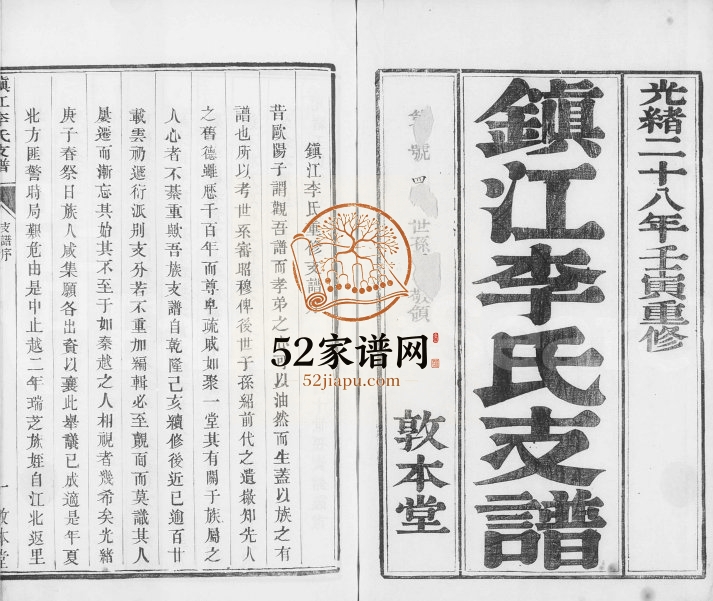 光緒二十八年壬寅重修
鎮江李氏支譜
敦本堂
號 四 世孫 領
鎮江李氏重修支譜
昔歐陽子謂觀吾譜而孝弟之 可以油然而生蓋以族之有
譜也所以考世系審昭穆俾後世子孫紹前代之遺徽知先人
之舊德雖歷千百年而尊卑疏戚如聚一堂其有關于族屬之
人心者不綦重歟吾族支譜自乾隆己亥續修後近已逾百廿
載雲礽遞衍派別支分若不重加編輯必至覿面而莫識其人
屢遷而漸忘其始其不至于如秦越之人相視者幾希矣光緒
庚子春祭日族人咸集願各出資以襄此舉議已成適是年夏
北方匪警時局艱危由是中止越二年瑞芝族姪自江北返里
鎮江李氏支譜
支譜序
一
敦本堂
52家谱网
52jiapu.com